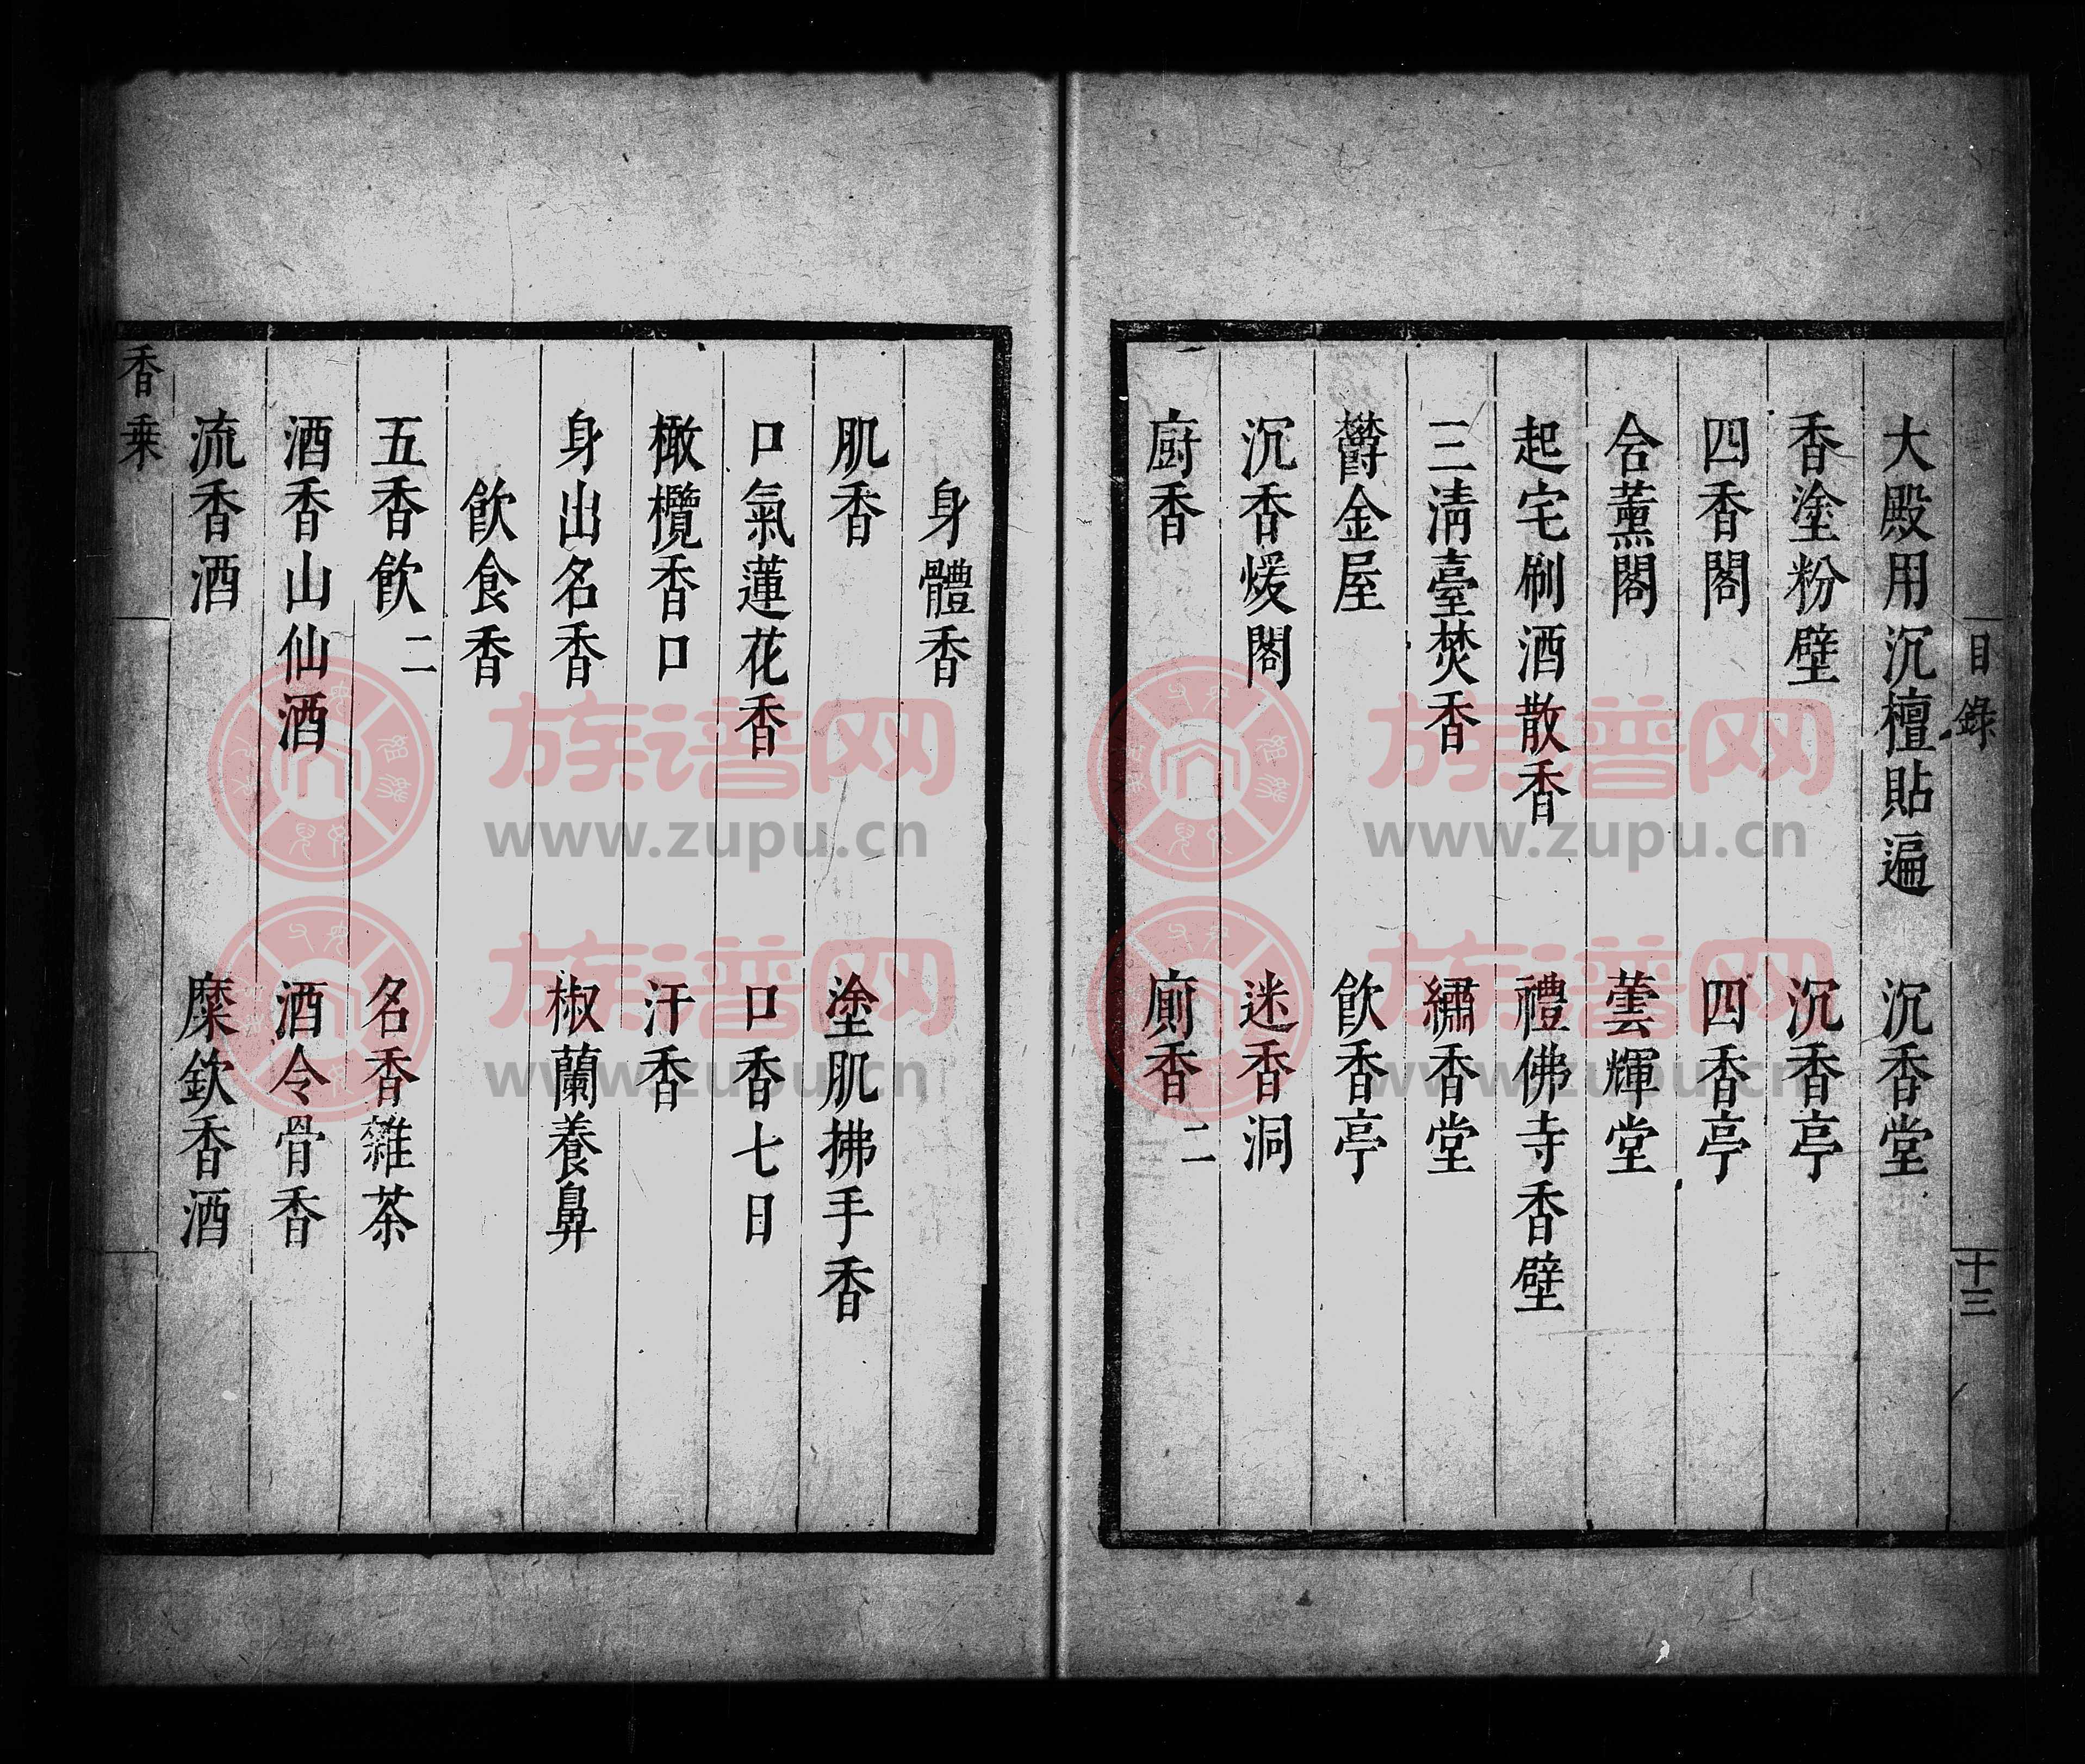 目錄
十三
大殿用沉檀貼遍 沉香堂
香塗粉壁 沉香亭
四香閣 四香亭
合薰閣 蕓輝堂
起宅刷酒散香 禮佛寺香壁
三清臺焚香 繡香堂
鬱金屋 飲香亭
沉香煖閣 迷香洞
廚香 廁香二
身體香
肌香 塗肌拂手香
口氣蓮花香 口香七日
橄欖香口 汗香
身出名香 椒蘭養鼻
飲食香
五香飲二 名香雜茶
酒香山仙酒 酒令骨香
流香酒 糜欽香酒
香乗
族谱网
www.zupu.cn
族谱网
www.zupu.cn
族谱网
www.zupu.cn
族谱网
www.zupu.cn